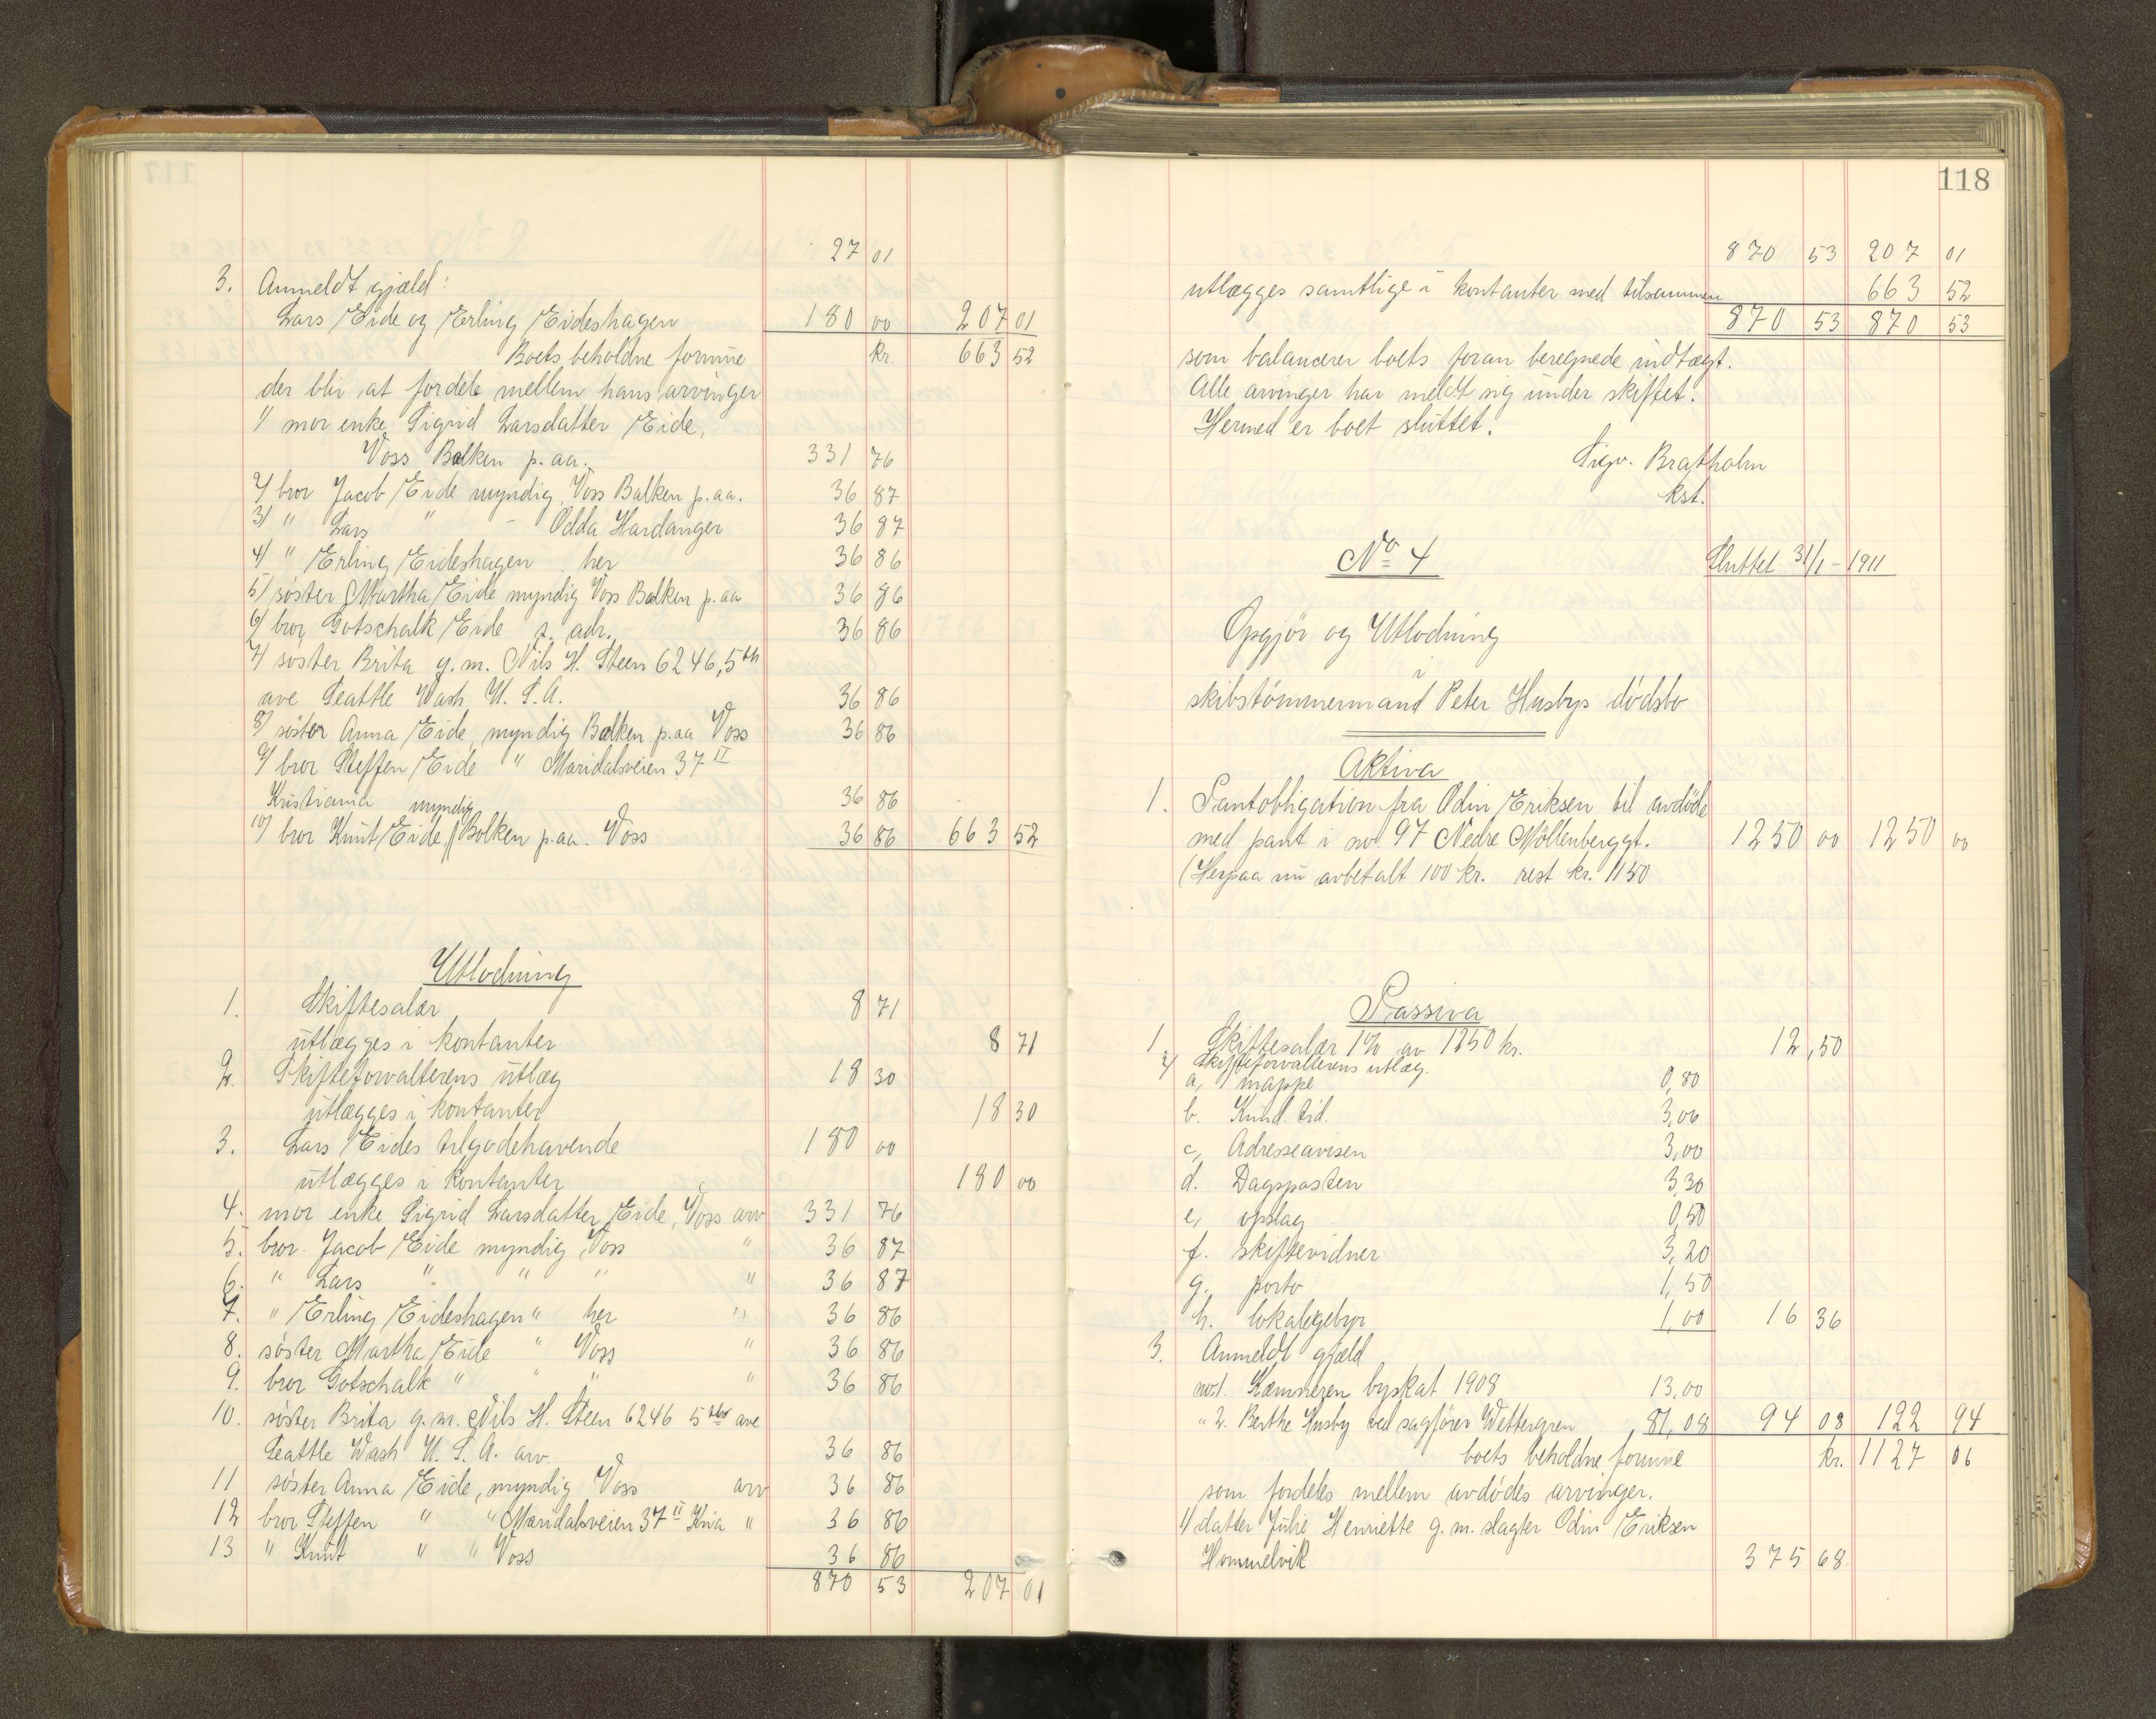 27 01
3. Anmeldt gjæld:
Lars Eide og Erling Eideshagen 180 00 207 01
Boets beholdne formue kr. 663 52
der blir at fordele mellem hans arvinger
1) mor enke Sigrid Larsdatter Eide,
Voss Bolken p.aa. 331 76
2) bror Jacob Eide myndig, Voss Bolken p.aa. 36 87
3) " Lars " - Odda Hardanger 36 87
4) " Erling Eideshagen, her 36 86
5) søster Martha Eide myndig Voss Bolken p.aa 36 86
6) bror Gotschalk Eide s. adr. 36 86
7) søster Brita g.m. Nils H. Steen 6246, 5th
ave Seattle Wash. U.S.A. 36 86
8) søster Anna Eide, myndig Bolken p.aa Voss 36 86
9) bror Steffen Eide " Maridalsveien 37 II
Kristiania 36 86
myndig
10) bror Knut Eide, Bolken p.aa. Voss 36 86 663 52
Utlodning
1. Skiftesalær 8 71
utlægges i kontanter 8 71
2. Skifteforvalterens utlæg 18 30
utlægges i kontanter 18 30
3. Lars Eides tilgodehavende 180 00
utlægges i kontanter 180 00
4. mor enke Sigrid Larsdatter Eide, Voss arv 331 76
5. bror Jacob Eide myndig, Voss " 36 87
6. " Lars " " " " 36 87
7. " Erling Eideshagen " her " 36 86
8. søster Martha Eide " Voss " 36 86
9. bror Gotschalk " " " " 36 86
10. søster Brita g.m. Nils H. Steen 6246 5th ave
Seattle Wash U.S.A. arv. 36 86
11 søster Anna Eide, myndig Voss arv 36 86
12 bror Steffen " " Maridalsveien 37 II Kria " 36 86
13 " Knut " " Voss 36 86
870 53 207 01
118
870 53 207 01
utlægges samtlige i kontanter med tilsammen 663 52
870 53 870 53
som balancerer boets foran beregnede indtægt.
Alle arvinger har meldt sig under skiftet.
Hermed er boet sluttet.
Sigv. Bratholm
kst.
No 4 Sluttet 31/1 - 1911
Opgjør og Utlodning
i
skibstømmermand Peter Husbys dødsbo
Aktiva
1. Pantobligation fra Odin Eriksen til avdøde
med pant i no. 97 Nedre Møllenberggt. 1250 00 1250 00
(Herpaa nu avbetalt 100 kr. rest kr. 1150
Passiva
1. Skiftesalær 1% av 1250 kr. 12,50
2) Skifteforvalterens utlæg.
a, mappe 0,80
b. Kund. tid. 3,06
c, Adresseavisen 3,00
d. Dagsposten 3,30
e, opslag 0,50
f. skiftevidner 3,20
g. porto 1,50
h. lokalegebyr 1,00 16 36
3. Anmeldt gjæld
no 1. Kæmneren byskat 1908 13,00
" 2. Berthe Husby ved sagfører Wettergren 81,08 94 08 122 94
boets beholdne formue kr. 1127 06
som fordeles mellem avdødes arvinger.
1) datter Julie Henriette g.m. slagter Odin Eriksen
Hommelvik 375 68